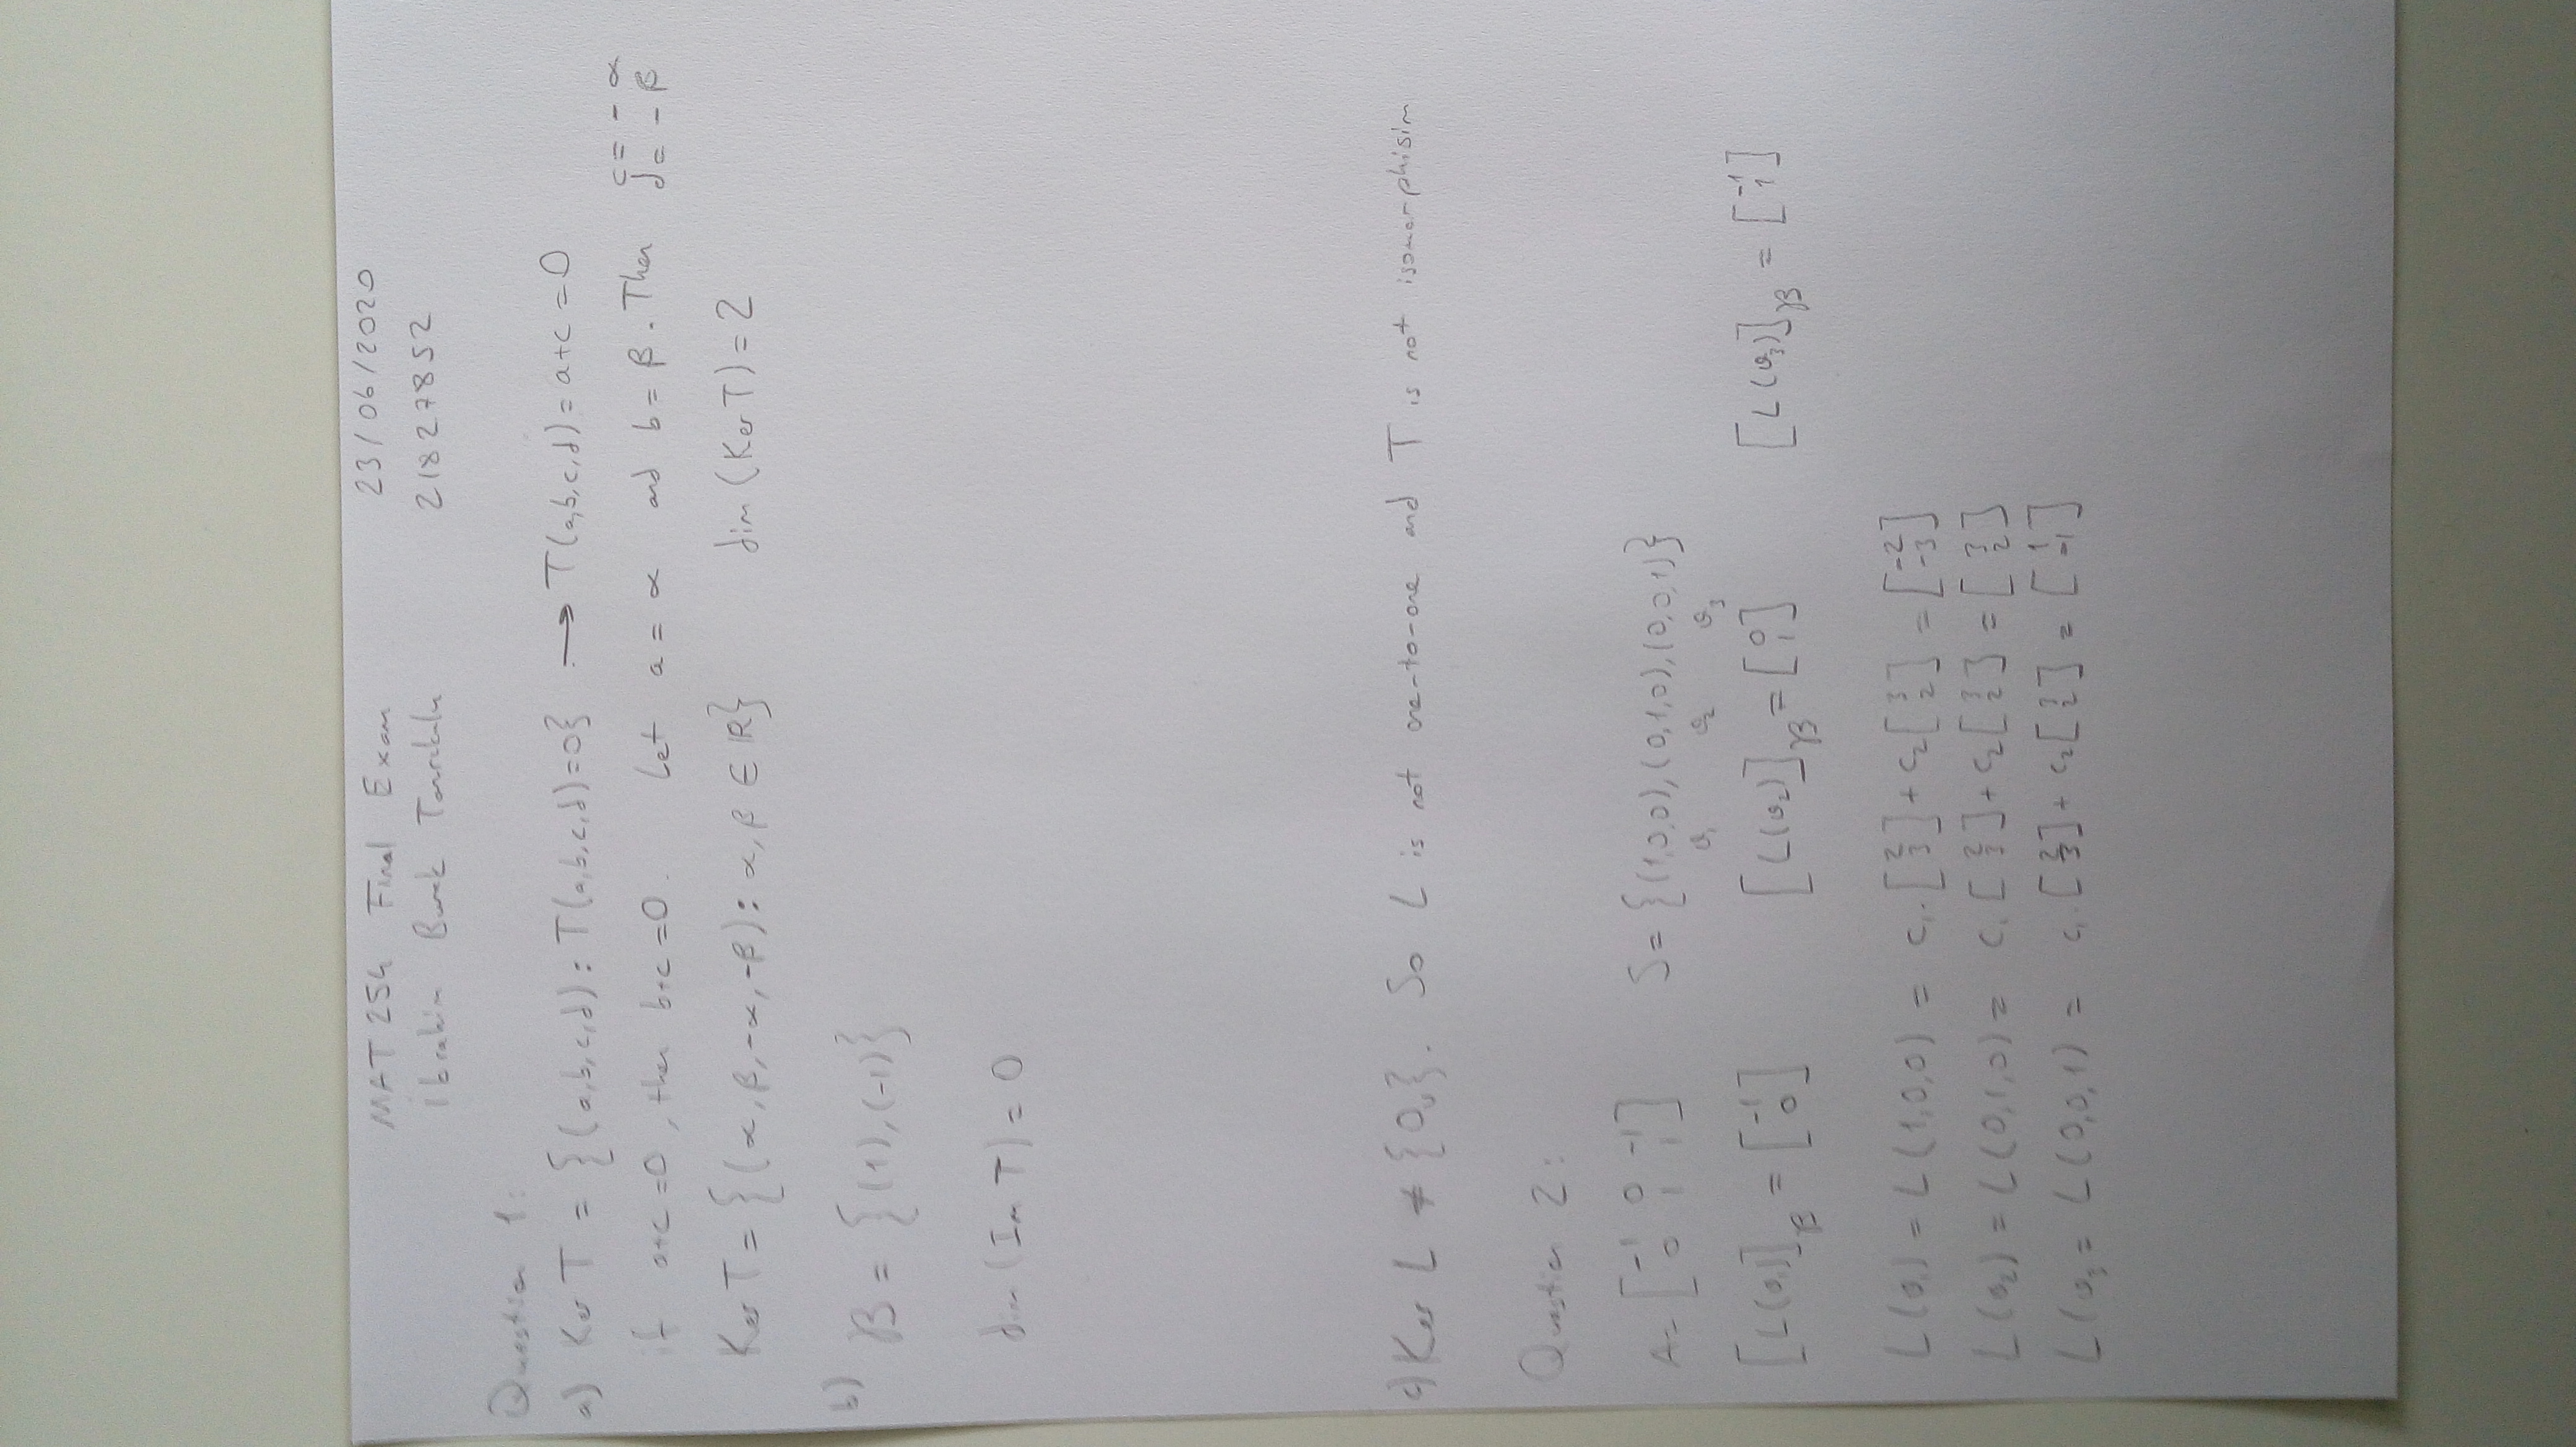 MAT 254 Final Exam 23/06/2020
İbrahim Burak Tanrıkulu 21827852
Question 1:
a) Ker T = {(a,b,c,d) : T(a,b,c,d)=0} → T(a,b,c,d) = a+c = 0
if a+c=0, then b+c=0. Let a = α and b = β. Then c = -α d = -β
Ker T = {(α, β, -α, -β) : α, β ∈ ℝ} dim (Ker T) = 2
b) β = {(1), (-1)}
dim (Im T) = 0
c) Ker L ≠ {0ᵥ}. So L is not one-to-one and T is not isomorphisim
Question 2:
A = [-1 0 -1; 0 1 1] S = {(1,0,0), (0,1,0), (0,0,1)}
v₁ v₂ v₃
[L(v₁)]β = [-1; 0] [L(v₂)]β = [0; 1] [L(v₃)]β = [-1; 1]
L(v₁) = L(1,0,0) = c₁.[2; 3] + c₂[3; 2] = [-2; -3]
L(v₂) = L(0,1,0) = c₁[2; 3] + c₂[3; 2] = [3; 2]
L(v₃ = L(0,0,1) = c₁.[2; 3] + c₂[3; 2] = [1; -1]